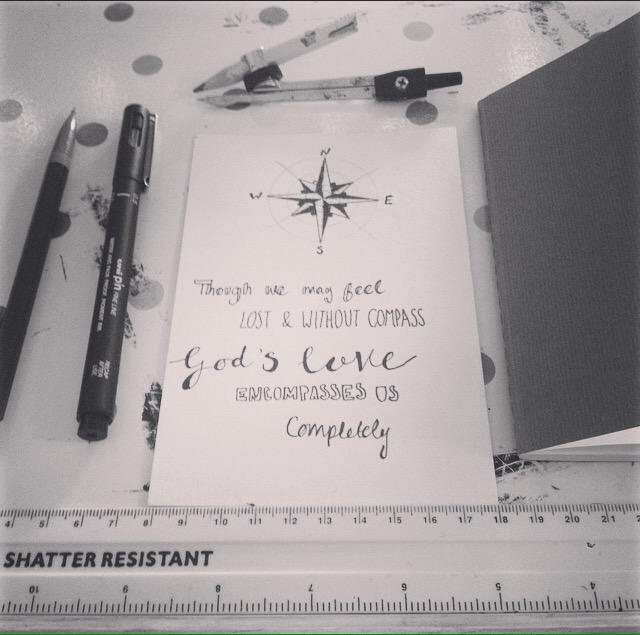 N
W E
S
Though we may feel
LOST & WITHOUT COMPASS
God's love
ENCOMPASSES US
Completely
uni pin FINE LINE
WATER AND FADE PROOF PIGMENT INK
RECAP AFTER USE
4 5 6 7 8 9 10 11 12 13 14 15 16 17 18 19 20 21
SHATTER RESISTANT
10 9 8 7 6 5 4